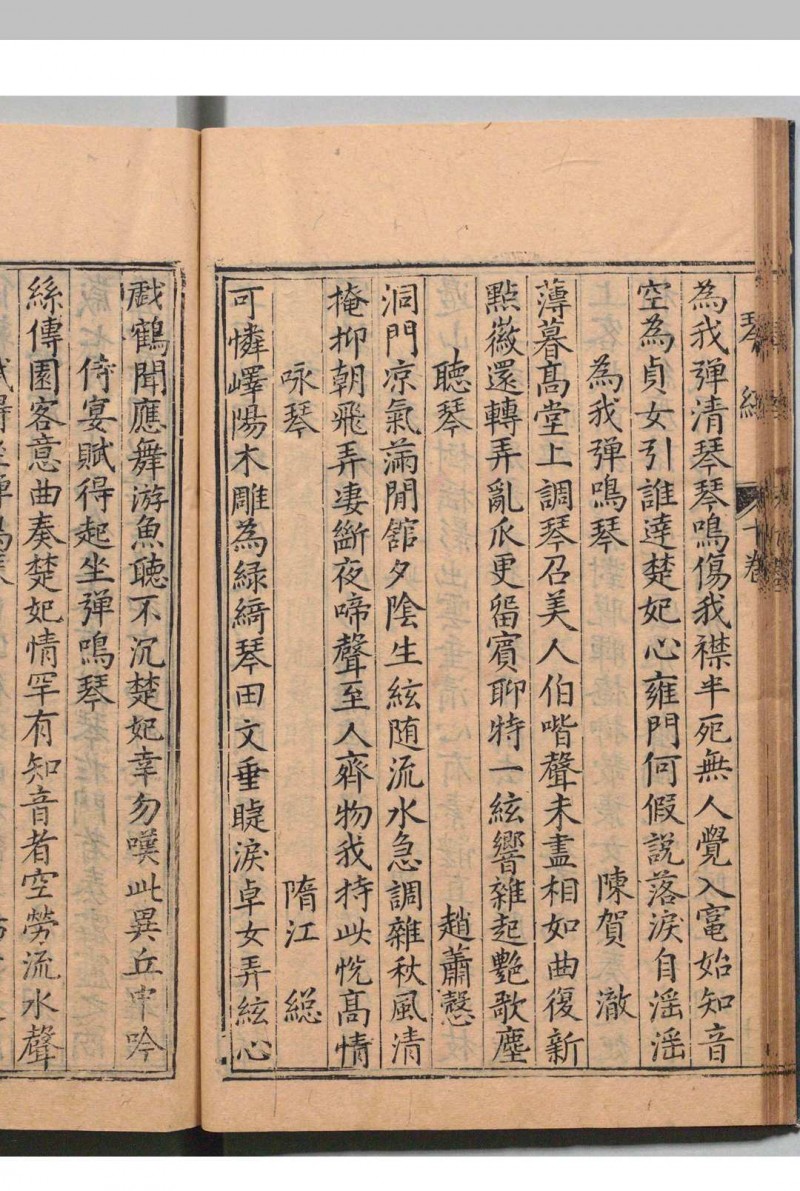 琴經 十卷
為我彈清琴琴鳴傷我襟半死無人覺入竈始知音
空為貞女引誰達楚妃心雍門何假說落淚自滛滛
為我彈鳴琴 陳賀 澈
薄暮髙堂上調琴召美人伯喈聲未盡相如曲復新
點徽還轉弄亂爪更留賓聊特一絃響雜起艶歌塵
聽琴 趙蕭慤
洞門凉氣滿閒舘夕陰生絃随流水急調雜秋風清
掩抑朝飛弄凄斷夜啼聲至人齊物我持此恱髙情
咏琴 隋江 総
可憐嶧陽木雕為緑綺琴田文垂睫淚卓女弄絃心
戲鶴聞應舞游魚聽不沉楚妃幸勿嘆此異丘中吟
侍宴賦得起坐弹鳴琴
絲傳園客意曲奏楚妃情罕有知音者空勞流水聲